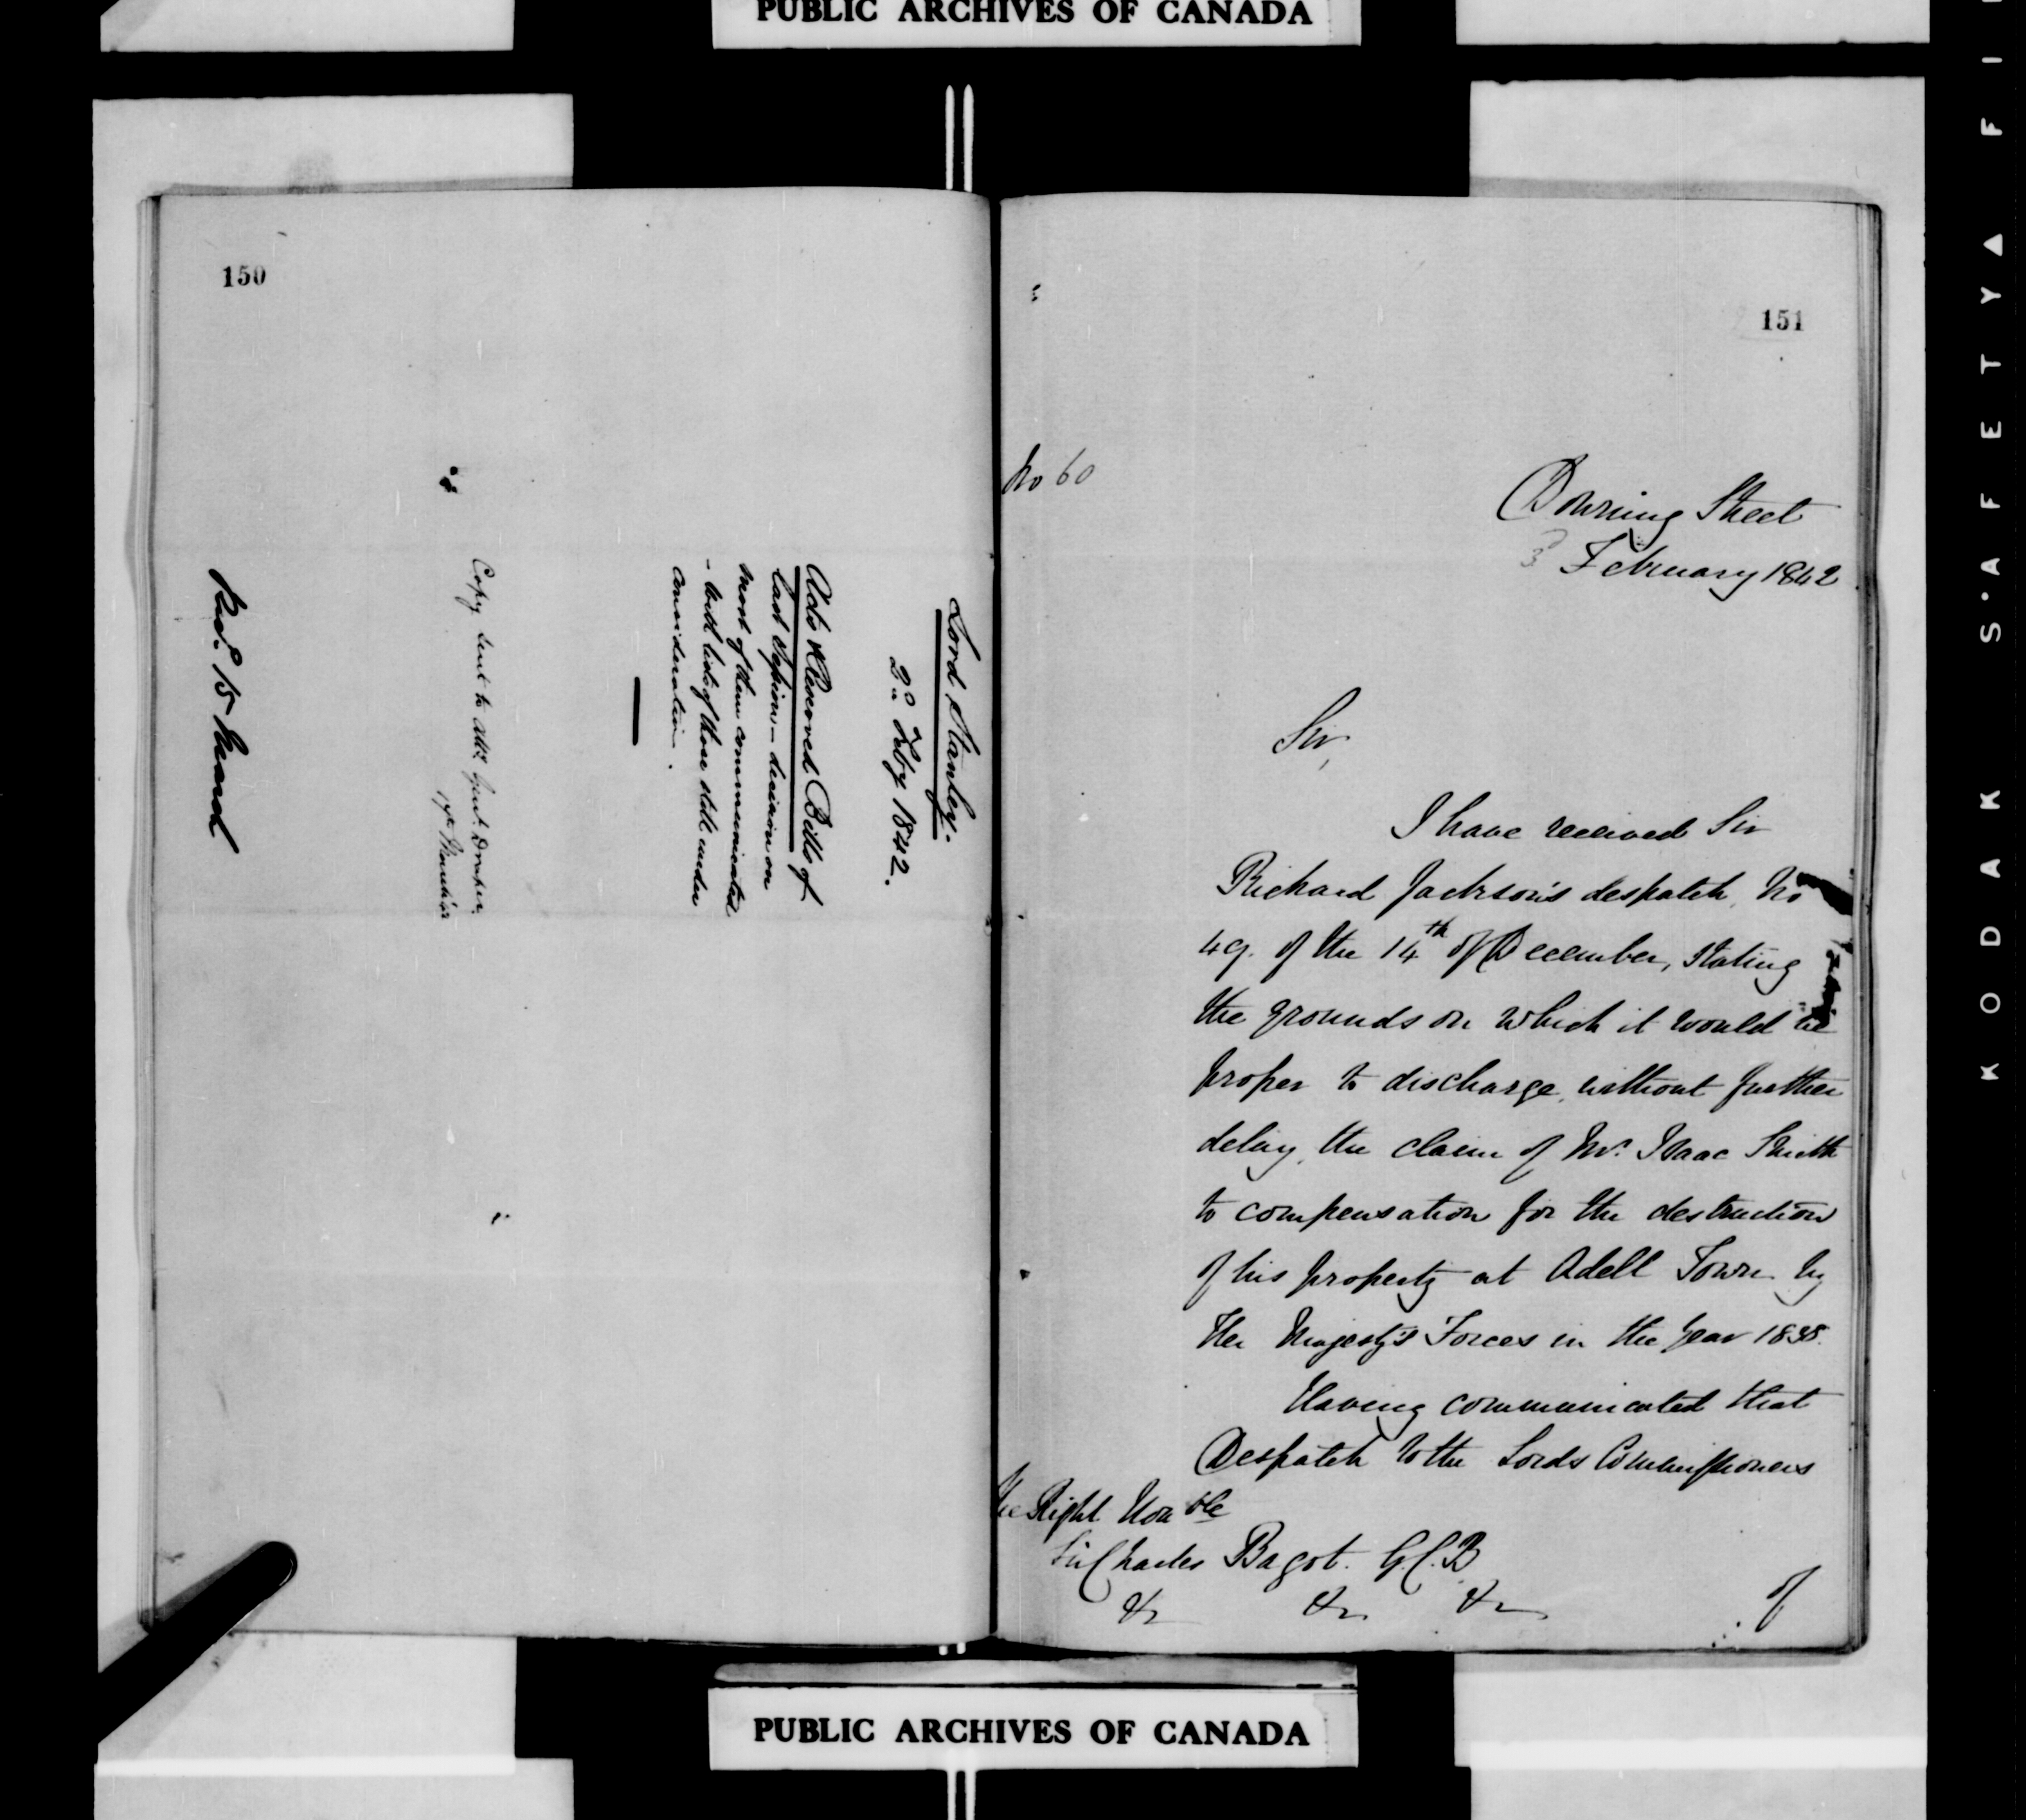 PUBLIC ARCHIVES OF CANADA
150
Lord Stanley.
2d Feby 1842.
Acts Reserved Bills of
last Session – decision on
most of them communicated
- with lists of those still under
consideration.
Copy sent to Atty Genl. Draper
Recd. 15 March
151
No 60
Downing Street
3d February 1842
Sir,
I have received Sir
Richard Jackson's despatch, No
49. of the 14th of December, stating
the grounds on which it would be
proper to discharge, without further
delay, the claim of Mr. Isaac Smith
to compensation for the destruction
of his property at Odell Town by
Her Majesty's Forces in the year 1838.
Having communicated that
Despatch to the Lords Commissioners
The Right Honble
Sir Charles Bagot. G.C.B
&c &c &c
of
PUBLIC ARCHIVES OF CANADA
KODAK S.AFETY▲ FI